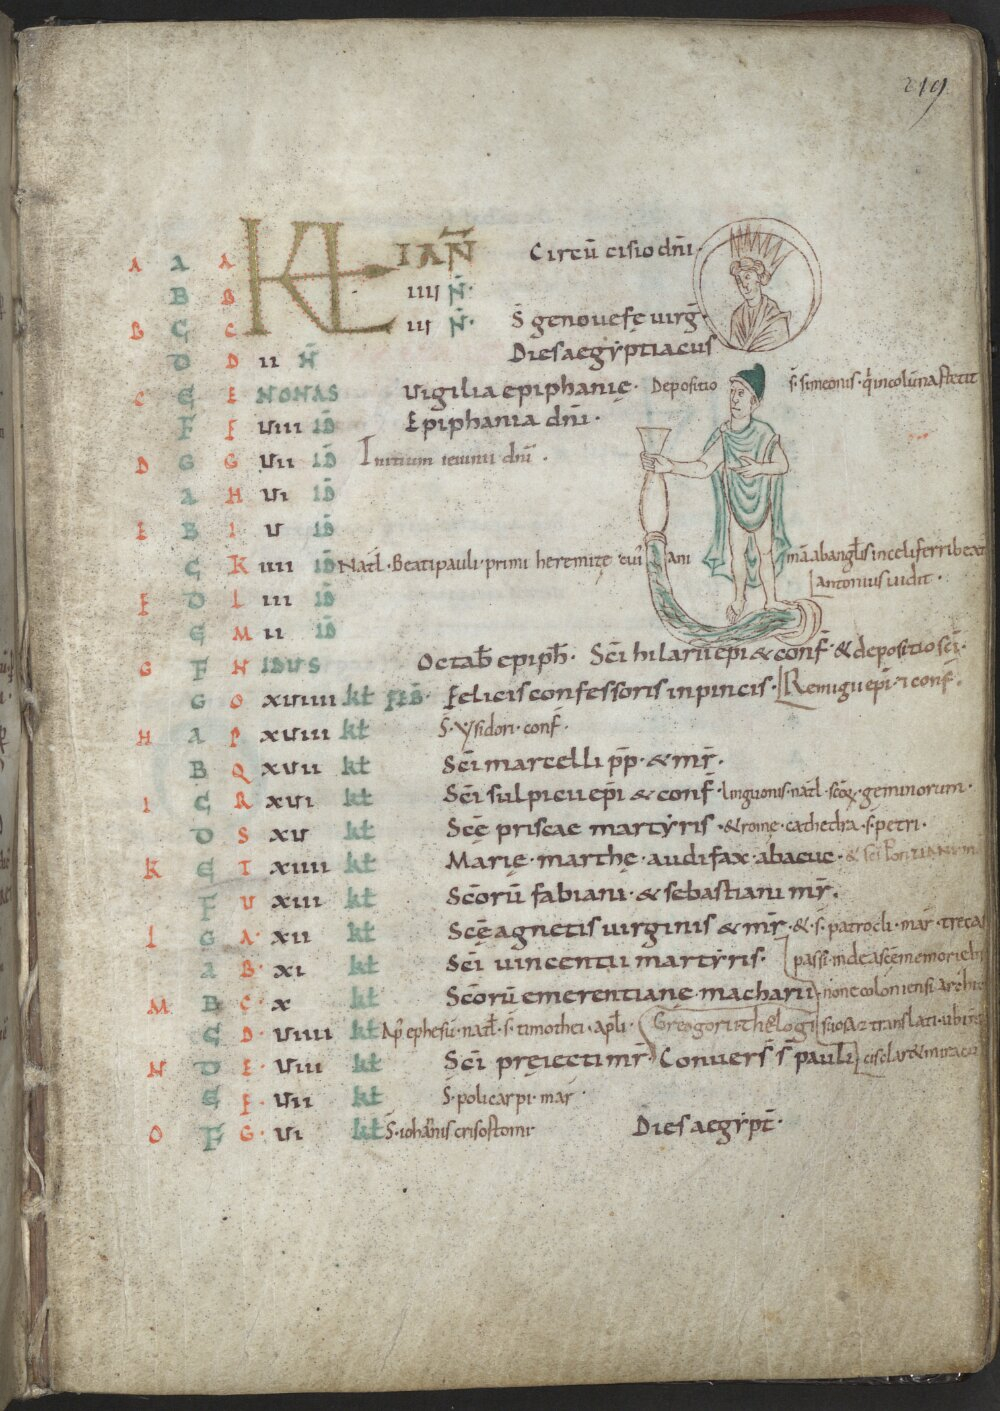 219
A A A KL IAN̄ Circū cisio dnī.
B B IIII N̄.
B C C III N̄. S̄ genouefe uirḡ.
D D II N̄ Dies aegẏptiacus
C E E NONAS Uigilia epiphanię. Depositio s̄. simeonis. q̄ incolūna stetit
F F VIII ID̄ Epiphania dnī.
D G G VII ID̄ Initium ieiunii dnī.
A H VI ID̄
E B I V ID̄
C K IIII ID̄ Natł. Beati pauli primi heremitę cui᷒ ani mā ab angłis in celi ferri beat᷒
F D L III ID̄ antonius uidit.
E M II ID̄
G F N IDUS Octab̄ epiph̄. Scī hilarii ep̄i & conf̄. & depositio scī.
G O XVIIII kł FEB̄. Felicis confessoris in pincis. Remigii ep̄i ⁊ conf̄.
H A P XVIII kł S̄. ysidori. conf̄.
B Q XVII kł Scī marcelli p̄p. & mr̄.
I C R XVI kł Scī sulpicii ep̄i & conf̄. linguonis. natł. scōꝝ. geminorum.
D S XV kł Scę̄ priscae martẏris. & rome. cathedra. s̄. petri.
K E T XIIII kł Marię. marthę. audifax. abacuc. & scī Pontiani m
F U XIII kł Scōrū fabiani. & sebastiani mr̄.
L G A. XII kł Scę̄ agnetis uirginis & mr̄. & s̄. patrocli. mar̄. treca
A B. XI kł Scī uincentii martẏris. passi. inde ascę̄ memorie
M B C. X kł Scōrū emerentiane. macharii. none coloniensi. archi
C D. VIIII kł Ap̄ ephesū. natł. s̄. timothei. apłi. Gregorii theologi suo fa translati. ubi
N D E. VIII kł Scī pręiecti mr̄. Convers̄ s̄ pauli
E F. VII kł S̄. policarpi. mar̄.
O F G. VI kł S̄. iohannis crisostomi Dies aegẏpt̄.